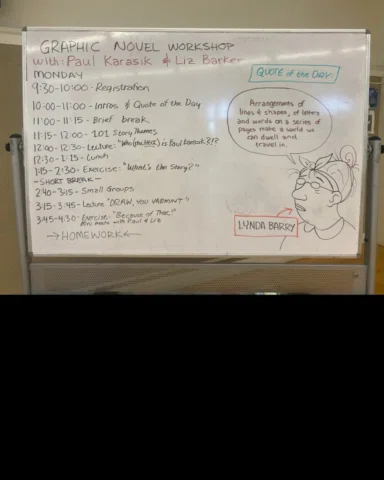 GRAPHIC NOVEL WORKSHOP
with: Paul Karasik & Liz Barker
MONDAY
9:30-10:00 - Registration
10:00-11:00 - Intros & Quote of the Day
11:00-11:15 - Brief break
11:15-12:00 - 101 Story Themes
12:00-12:30 - Lecture: "Who (the Heck) is Paul Karasik?!?
12:30-1:15 - Lunch
1:15-2:30 - Exercise: "What's the Story?"
-SHORT BREAK-
2:40-3:15 - Small Groups
3:15-3:45 - Lecture "DRAW, YOU VARMINT"
3:45-4:30 - Exercise: "Because of That,"
with Paul & Liz
→HOMEWORK←
QUOTE of the DAY:
Arrangements of
lines & shapes, of letters
and words on a series of
pages make a world we
can dwell and
travel in.
LYNDA BARRY